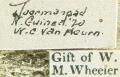 Toermongad
N. Guinea '20
W. C. Van Heurn.
Gift of W.
M. Wheeler